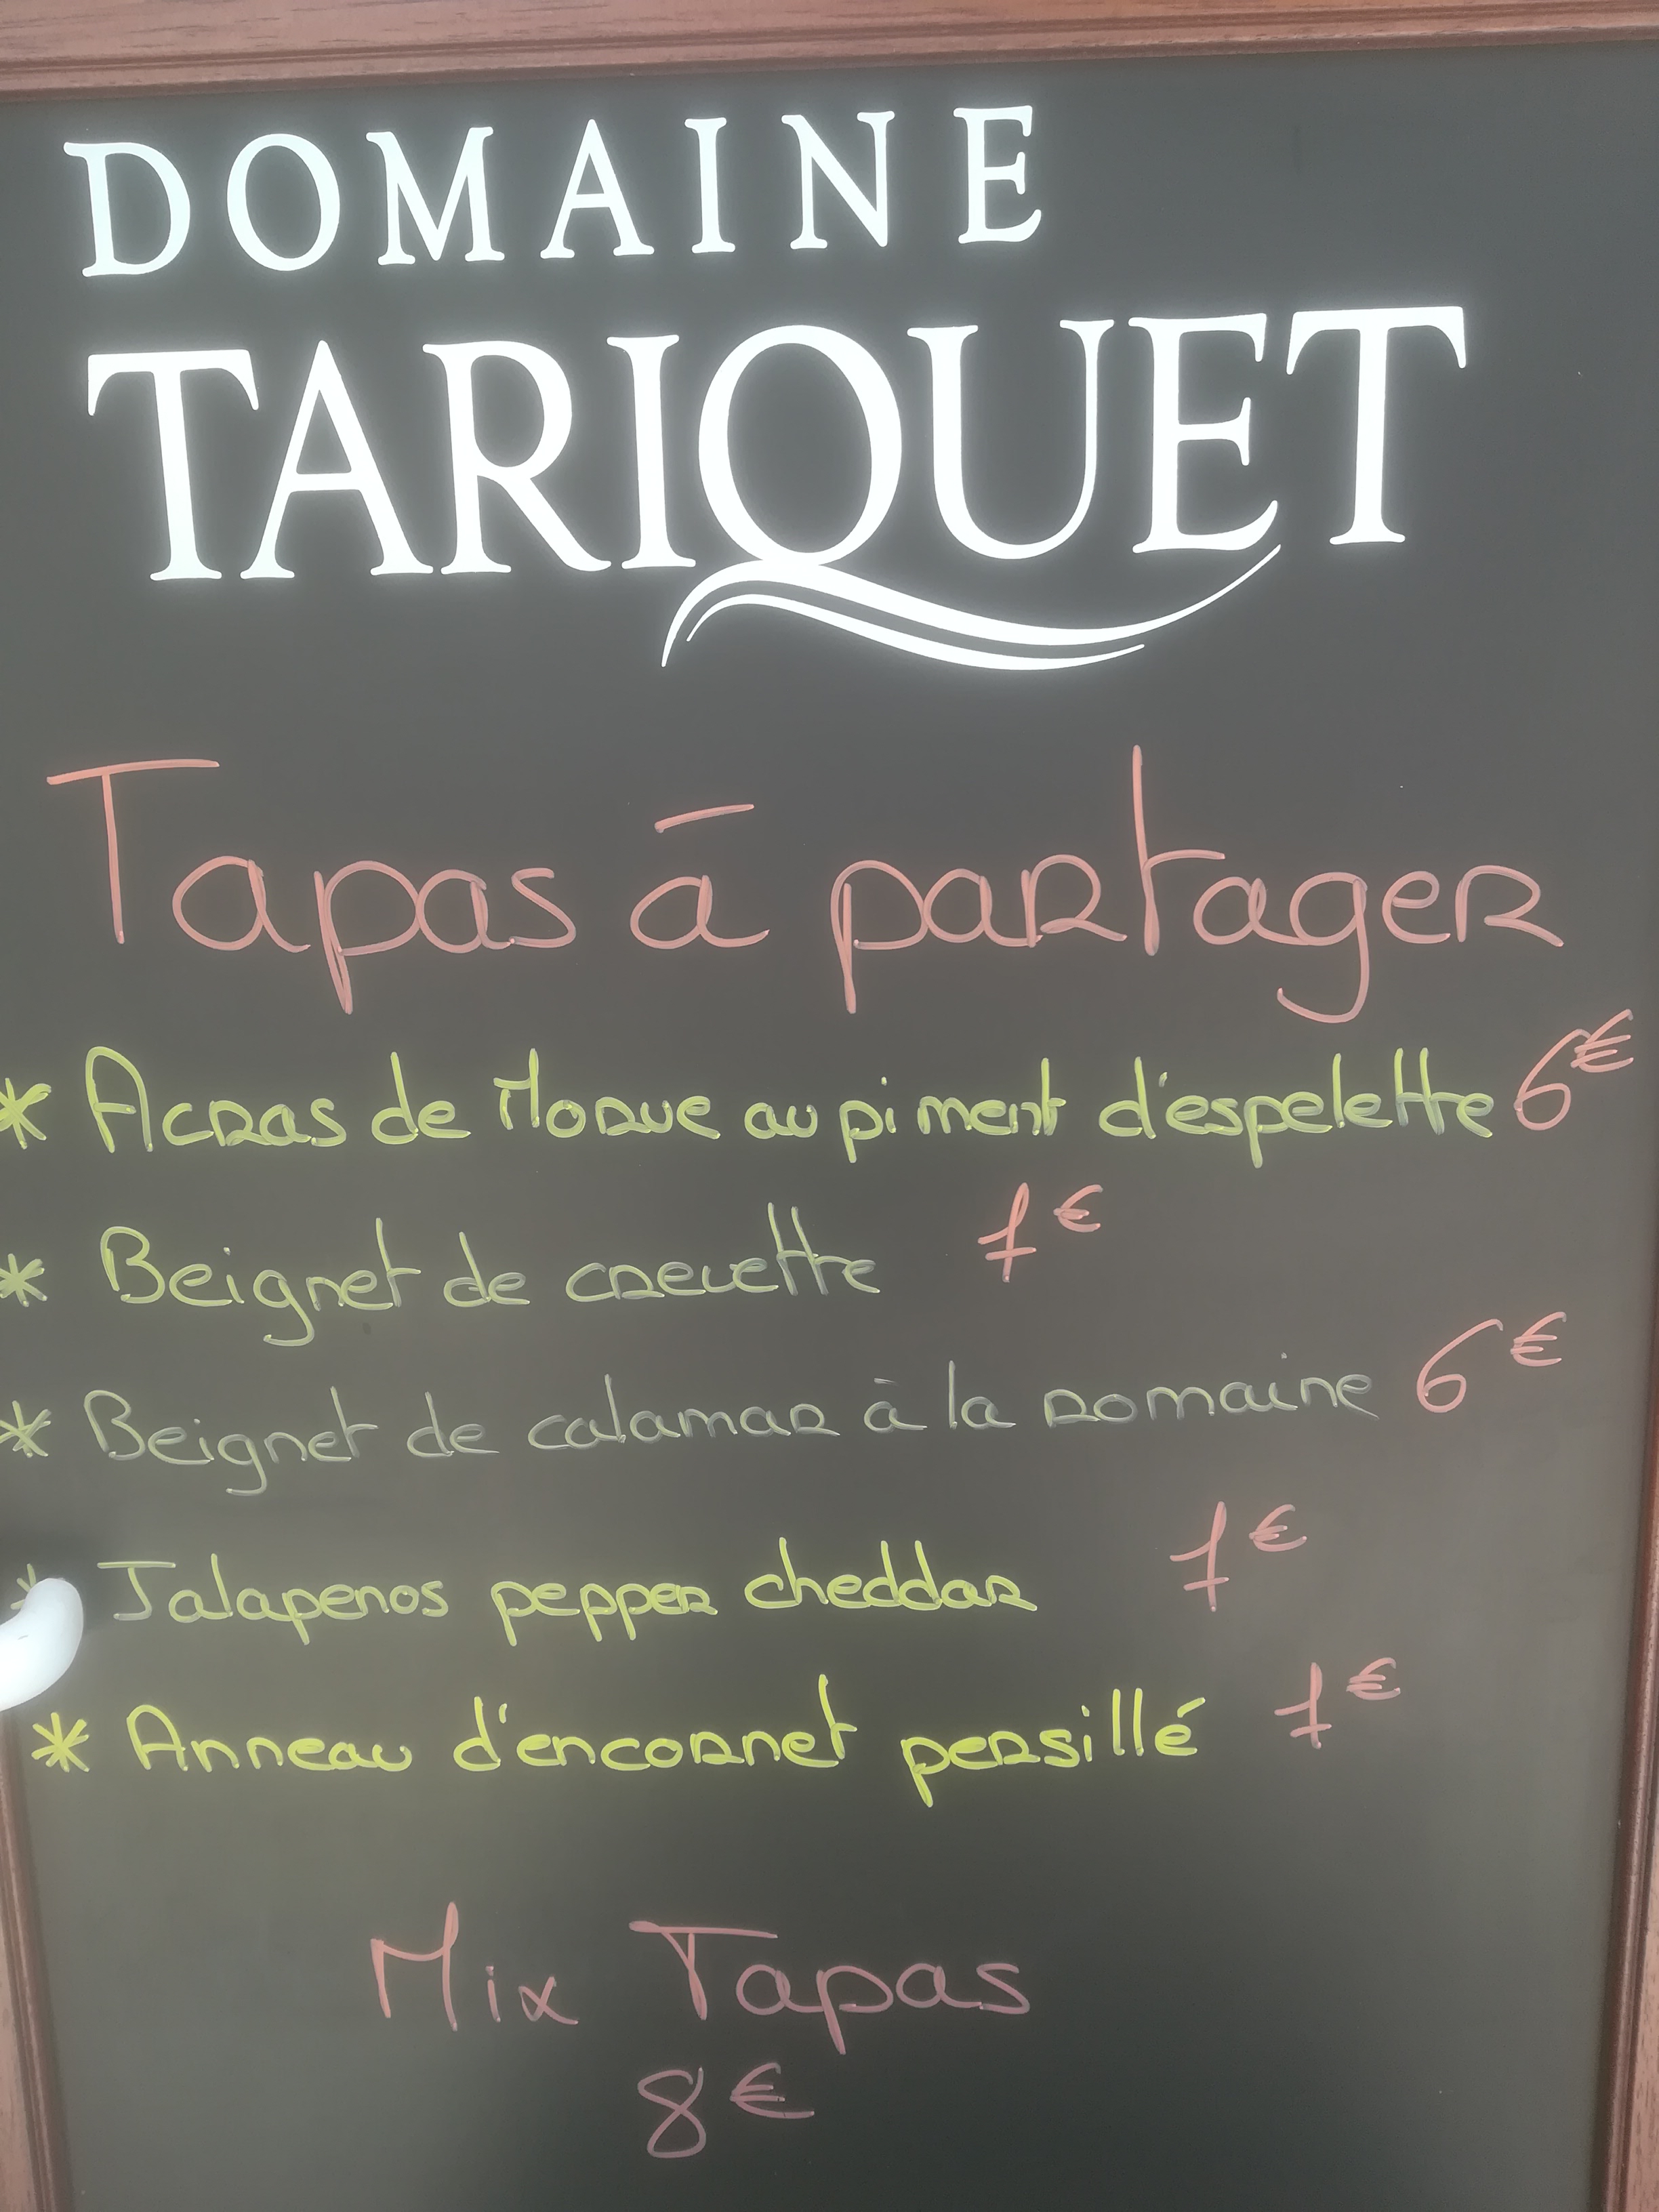 DOMAINE
TARIQUET
Tapas à partager
* Acras de Morue au piment d'espelette 6€
* Beignet de crevette 7€
* Beignet de calamar à la romaine 6€
* Jalapenos pepper cheddar 7€
* Anneau d'encornet persillé 7€
Mix Tapas
8€